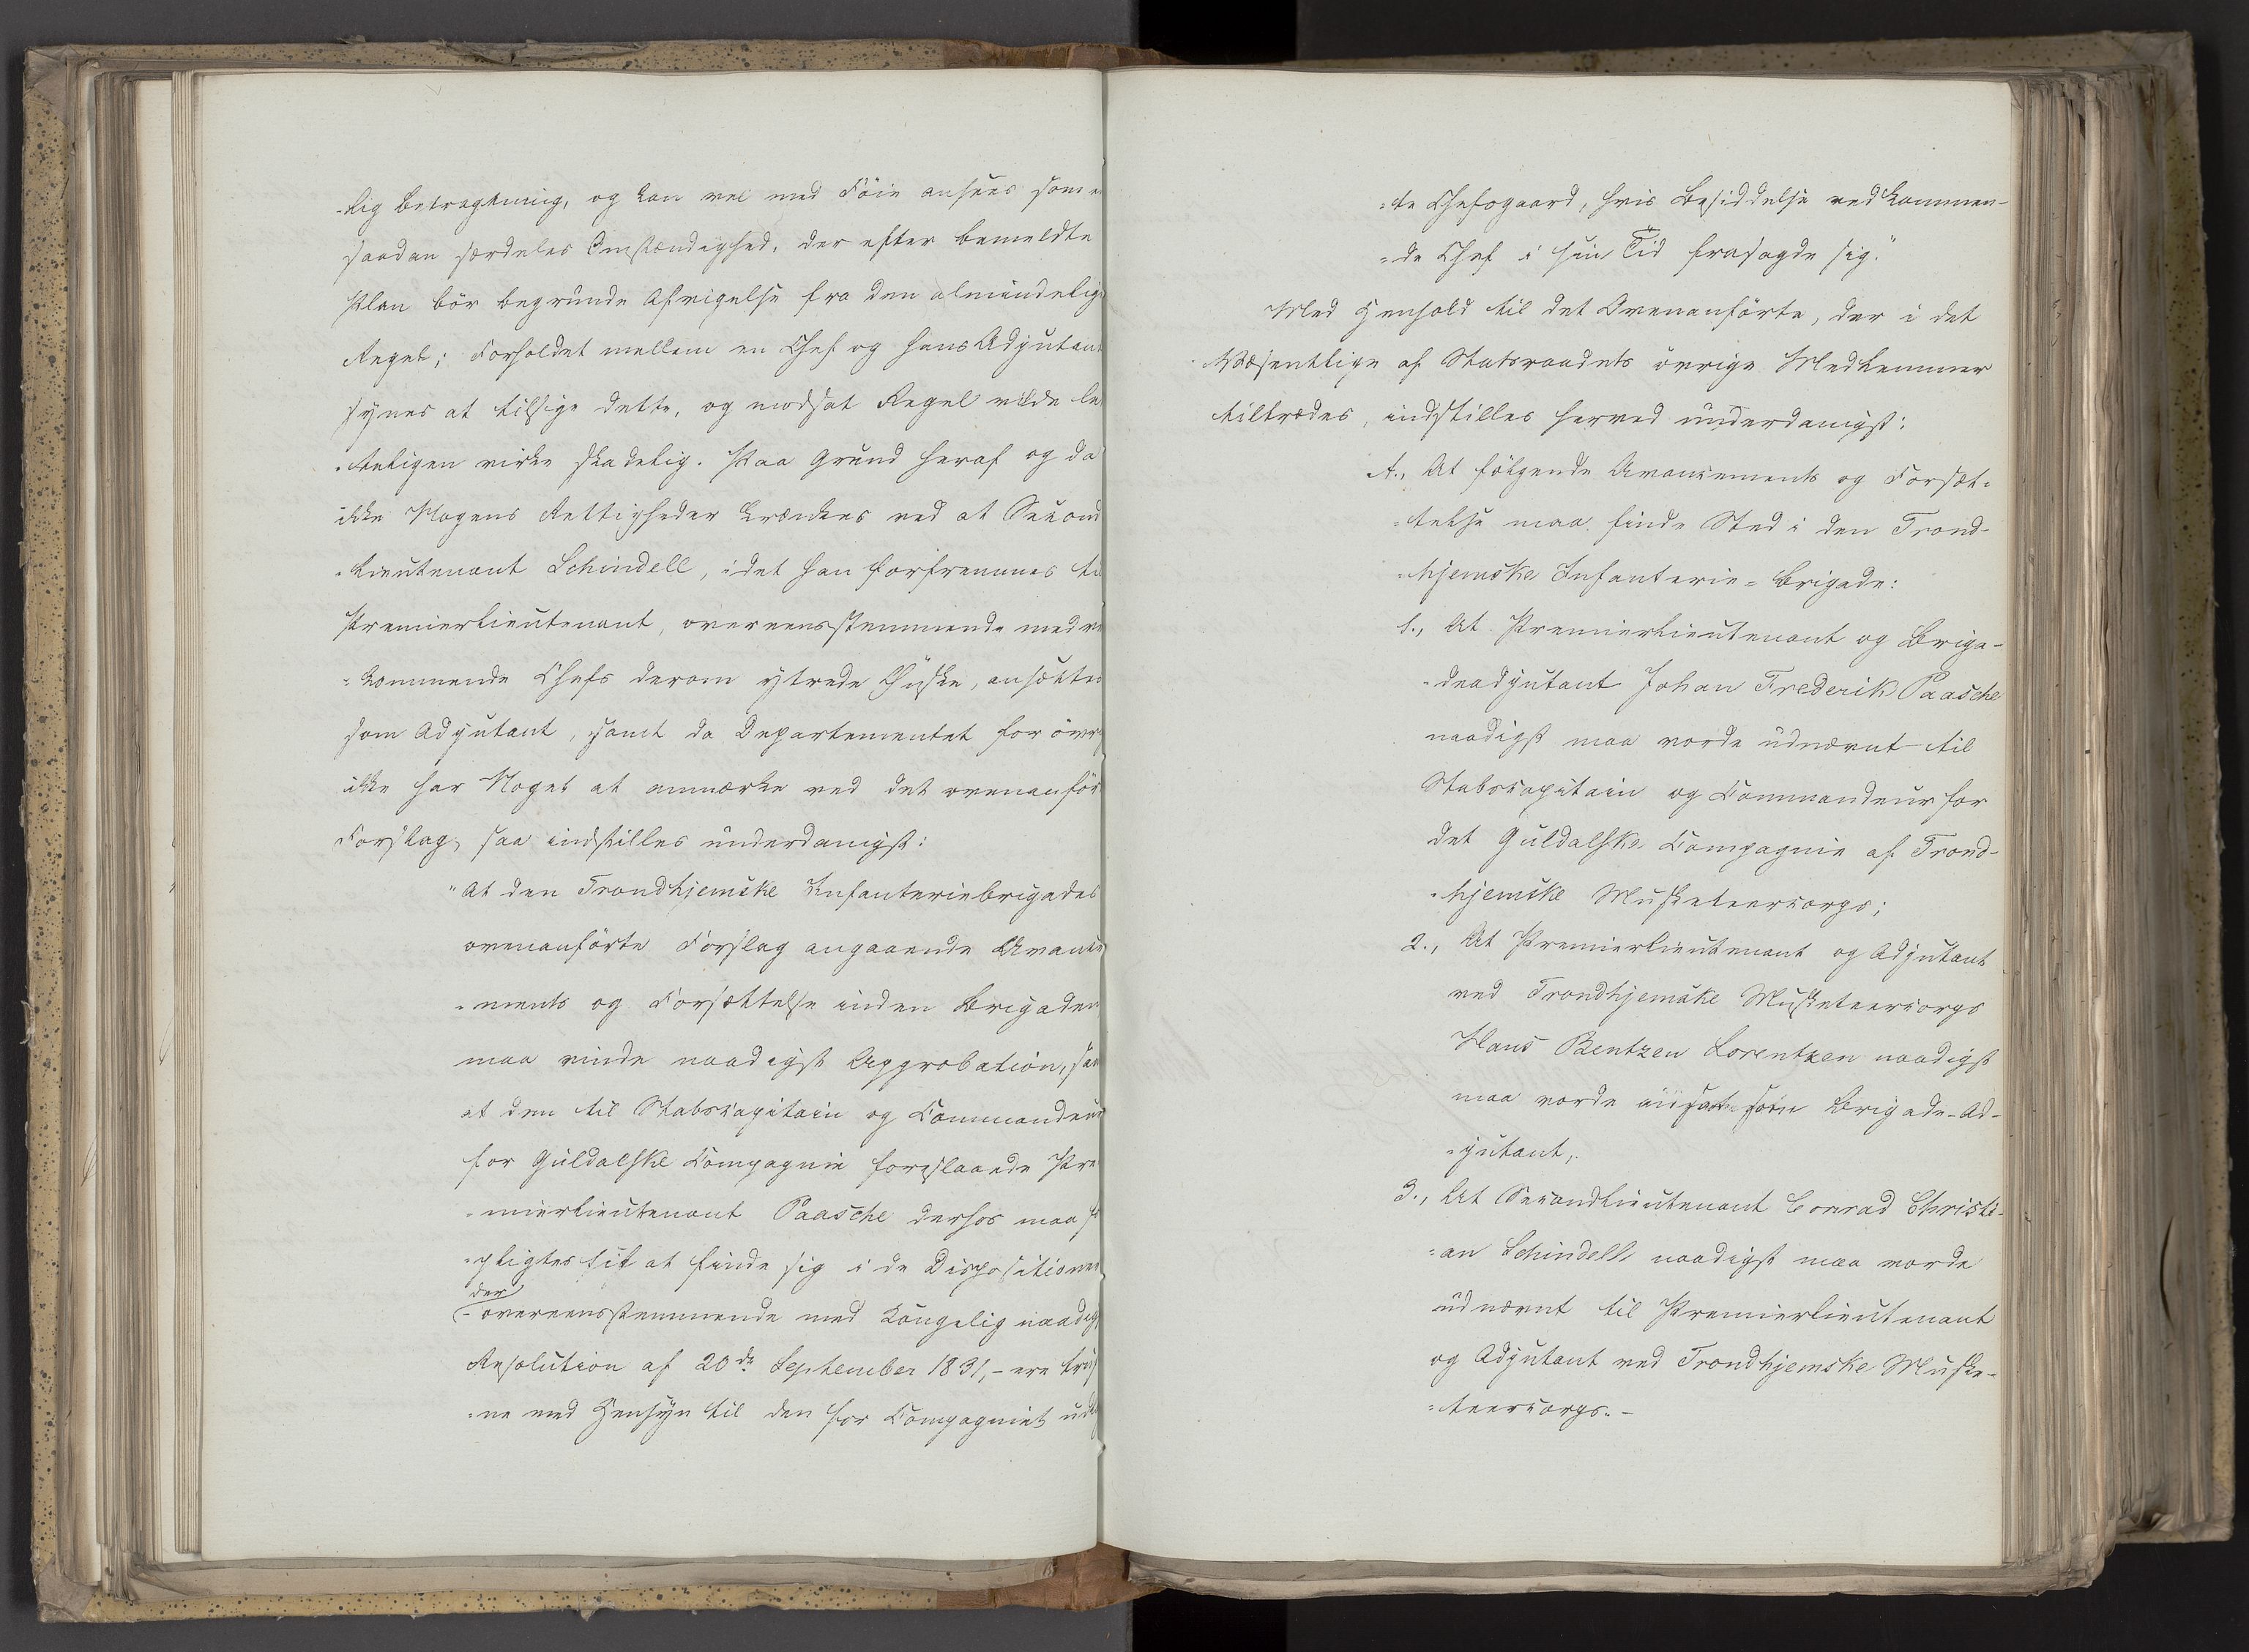 -lig Betragtning, og kan vel med Föie ansees som e
saadan særdeles Omstændighed, der efter bemeldte
Plan bör begrunde Afvigelse fra den almindelig
Regel; Forholdet mellem en Chef og hans Adjutan
synes at tilsige dette, og modsat Regel vilde le
-teligen virke skadelig. Paa Grund heraf og da
ikke Nogens Rettigheder krænkes ved at Second
-lieutenant Schindell, idet han forfremmes ti
Premierlieutenant, overeensstemmende med ve
-kommende Chefs derom yttrede Önske, ansættes
som Adjutant, samt da Departementet for övri
ikke har Noget at anmærke ved det ovenanför
Forslag, saa indstilles underdanigst:
"At den Trondhjemske Infanteriebrigades
ovenanförte Forslag angaaende Avance
-ments og Forsættelse inden Brigaden
maa vinde naadigst Approbation, saa
at den til Stabscapitain og Commandeur
for Guldalske Compagnie foreslaaede Pre
-mierlieutenant Paasche derhos maa fo
-pligtes til at finde sig i de Dispositioner
der
- overeensstemmende med Kongelig naadigst
Resolution af 20de September 1831,- ere truf
-ne med Hensyn til den for Compagniet udl
-te Chefsgaard, hvis Besiddelse vedkommen-
-de Chef i sin Tid frasagde sig."
Med Henhold til det Ovenanförte, der i det
Væsentlige af Statsraadets övrige Medlemmer
tiltrædes, indstilles herved underdanigst:
A., At fölgende Avancements og Forsæt-
-telse maa finde Sted i den Trond-
-hjemske Infanterie-Brigade:
1., At Premierlieutenant og Briga-
-deadjutant Johan Frederik Paasche
naadigst maa vorde udnævnt til
Stabscapitain og Commandeur for
det Guldalske Compagnie af Trond-
-hjemske Musketeercorps;
2., At Premierlieutenant og Adjutant
ved Trondhjemske Musketeercorps
Hans Bentzen Lorentzen naadigst
maa vorde ansat som Brigade-Ad-
-jutant,
3., At Secondlieutenant Conrad Christi-
-an Schindell naadigst maa vorde
udnævnt til Premierlieutenant
og Adjutant ved Trondhjemske Muske-
-teercorps.-